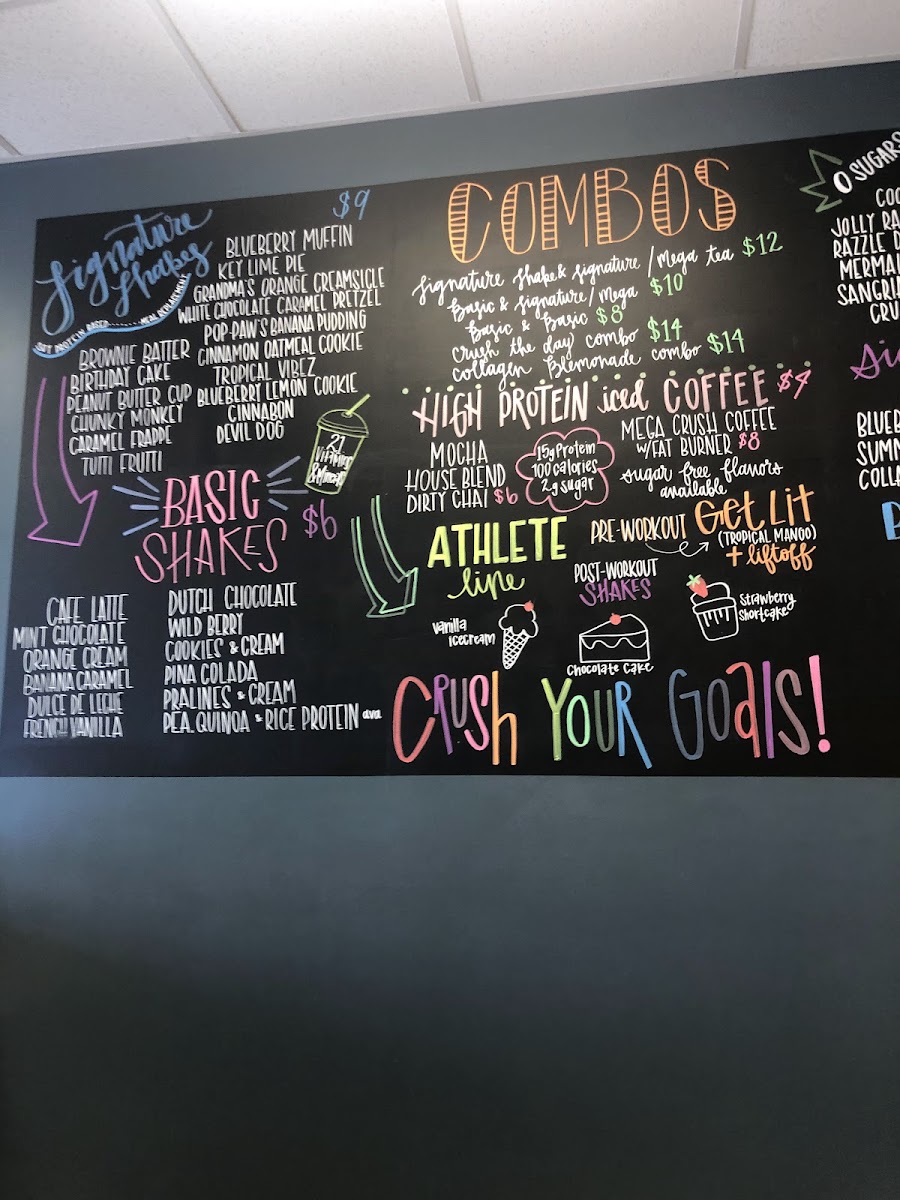 Signature Shakes
$9
SOY PROTEIN BASED........MEAL REPLACEMENT
BROWNIE BATTER
BIRTHDAY CAKE
PEANUT BUTTER CUP
CHUNKY MONKEY
CARAMEL FRAPPE
TUTTI FRUTTI
BLUEBERRY MUFFIN
KEY LIME PIE
GRANDMA'S ORANGE CREAMSICLE
WHITE CHOCOLATE CARAMEL PRETZEL
POP-PAW'S BANANA PUDDING
CINNAMON OATMEAL COOKIE
TROPICAL VIBEZ
BLUEBERRY LEMON COOKIE
CINNABON
DEVIL DOG
21
Vitamins
BASIC
SHAKES $6
CAFE LATTE
MINT CHOCOLATE
ORANGE CREAM
BANANA CARAMEL
DULCE DE LECHE
FRENCH VANILLA
DUTCH CHOCOLATE
WILD BERRY
COOKIES & CREAM
PINA COLADA
PRALINES & CREAM
PEA, QUINOA & RICE PROTEIN
COMBOS
Signature Shake & Signature / Mega tea $12
Basic & Signature / Mega $10
Basic & Basic $8
Crush the day combo $14
Collagen Blemonade combo $14
HIGH PROTEIN iced COFFEE $4
MOCHA
HOUSE BLEND
DIRTY CHAI $6
15g Protein
100 calories
2g sugar
MEGA CRUSH COFFEE
W/FAT BURNER $8
sugar free flavors
available
ATHLETE
line
PRE-WORKOUT Get Lit
(TROPICAL MANGO)
+ liftoff
POST-WORKOUT
SHAKES
Vanilla
Icecream
Chocolate Cake
Strawberry
Shortcake
Crush Your Goals!
0 SUGARS
COO
JOLLY RA
RAZZLE D
MERMA
SANGRI
CRU
Si
BLUEB
SUMM
COLLA